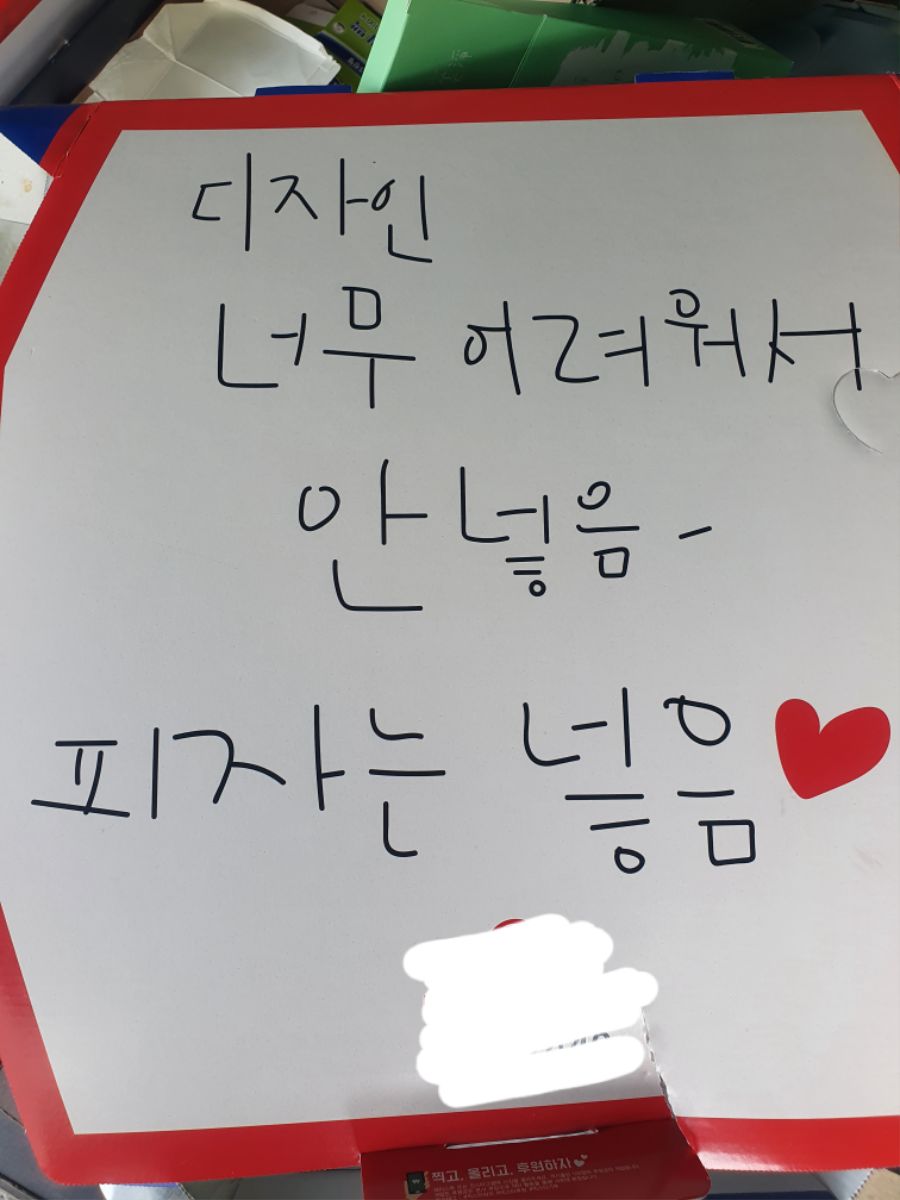 디자인
너무 어려워서
안 넣음-
피자는 넣음
찍고, 올리고, 후원하자